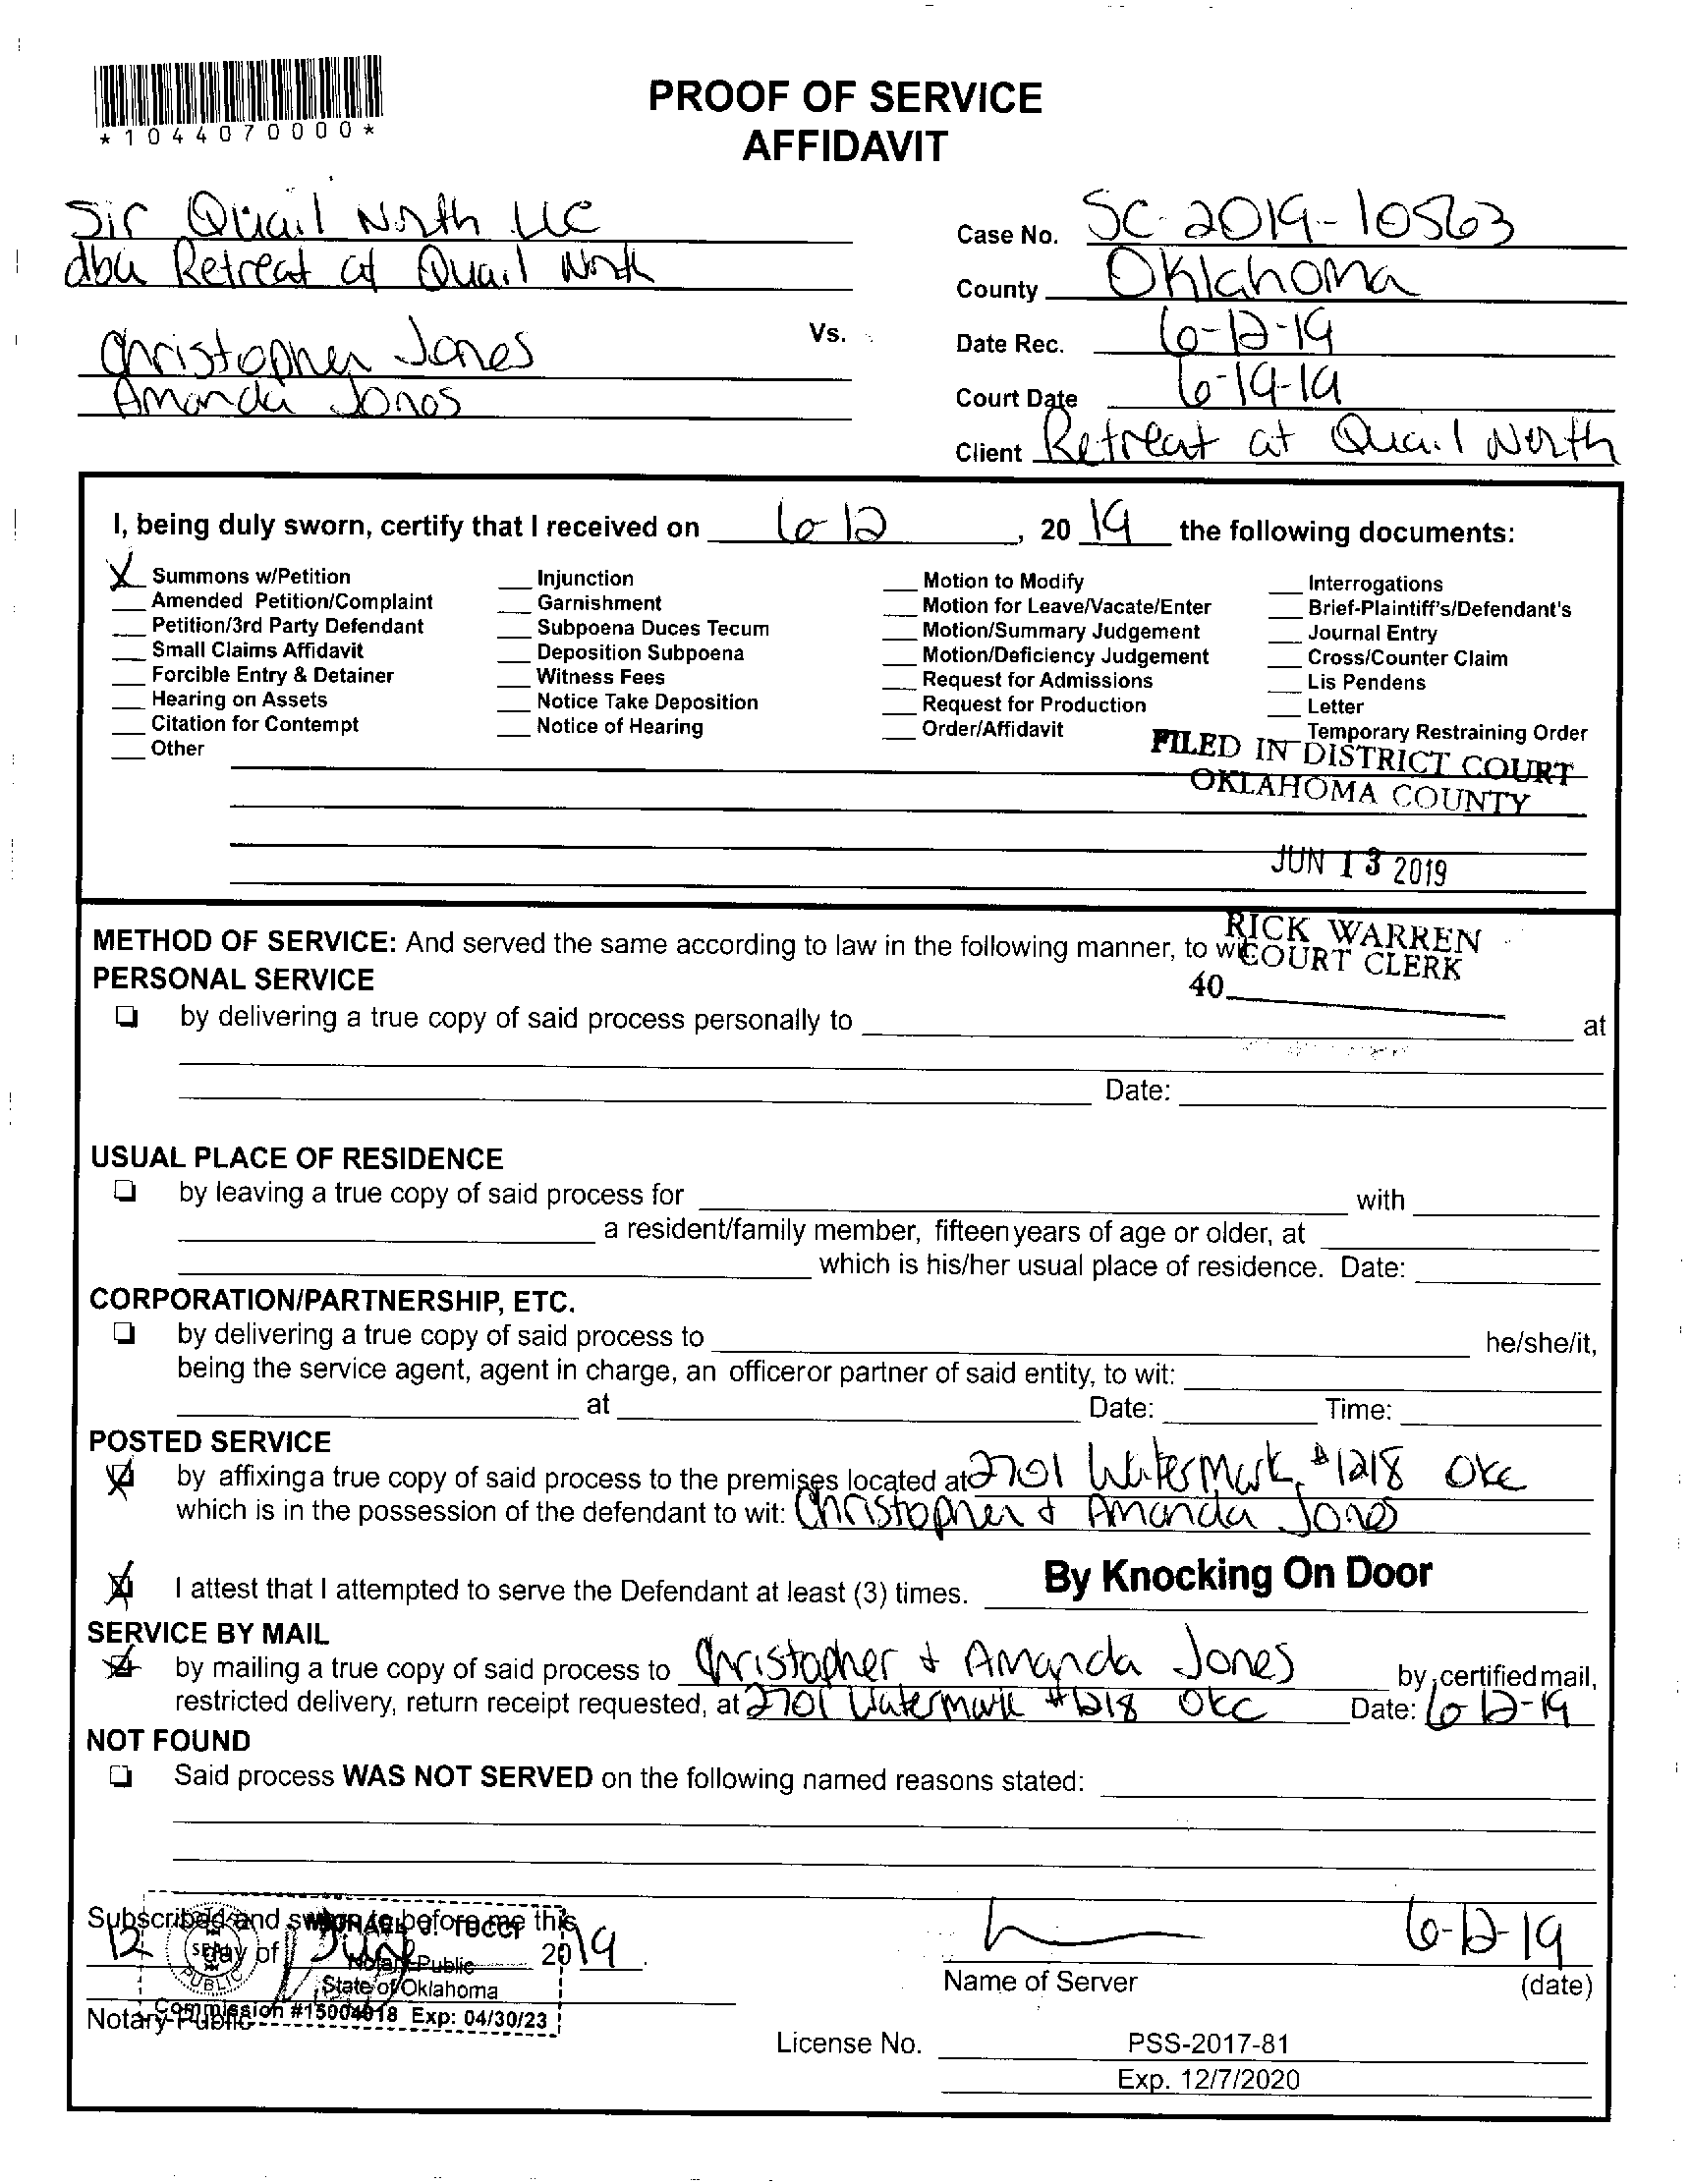 *1044070000*
PROOF OF SERVICE
AFFIDAVIT
Sir Quail North LLC
dba Retreat at Quail North
Vs.
Christopher Jones
Amanda Jones
Case No. SC-2019-10563
County Oklahoma
Date Rec. 6-12-19
Court Date 6-19-19
Client Retreat at Quail North
I, being duly sworn, certify that I received on 6-12, 2019 the following documents:
X Summons w/Petition
Amended Petition/Complaint
Petition/3rd Party Defendant
Small Claims Affidavit
Forcible Entry & Detainer
Hearing on Assets
Citation for Contempt
Other
Injunction
Garnishment
Subpoena Duces Tecum
Deposition Subpoena
Witness Fees
Notice Take Deposition
Notice of Hearing
Motion to Modify
Motion for Leave/Vacate/Enter
Motion/Summary Judgement
Motion/Deficiency Judgement
Request for Admissions
Request for Production
Order/Affidavit
Interrogations
Brief-Plaintiff's/Defendant's
Journal Entry
Cross/Counter Claim
Lis Pendens
Letter
Temporary Restraining Order
FILED IN DISTRICT COURT
OKLAHOMA COUNTY
JUN 13 2019
RICK WARREN
COURT CLERK
40
METHOD OF SERVICE: And served the same according to law in the following manner, to wit
PERSONAL SERVICE
by delivering a true copy of said process personally to at
Date:
USUAL PLACE OF RESIDENCE
by leaving a true copy of said process for with
a resident/family member, fifteen years of age or older, at
which is his/her usual place of residence. Date:
CORPORATION/PARTNERSHIP, ETC.
by delivering a true copy of said process to he/she/it,
being the service agent, agent in charge, an officer or partner of said entity, to wit:
at Date: Time:
POSTED SERVICE
X by affixing a true copy of said process to the premises located at 2701 Watermark, #1218 OKC
which is in the possession of the defendant to wit: Christopher & Amanda Jones
X I attest that I attempted to serve the Defendant at least (3) times. By Knocking On Door
SERVICE BY MAIL
X by mailing a true copy of said process to Christopher & Amanda Jones by certified mail,
restricted delivery, return receipt requested, at 2701 Watermark #1218 OKC Date: 6-12-19
NOT FOUND
Said process WAS NOT SERVED on the following named reasons stated:
Subscribed and sworn to before me this
12 day of June 2019
Notary Public
SEAL
PUBLIC
TUCCI
Notary Public
State of Oklahoma
Commission #15004018 Exp: 04/30/23
6-12-19
Name of Server (date)
License No. PSS-2017-81
Exp. 12/7/2020